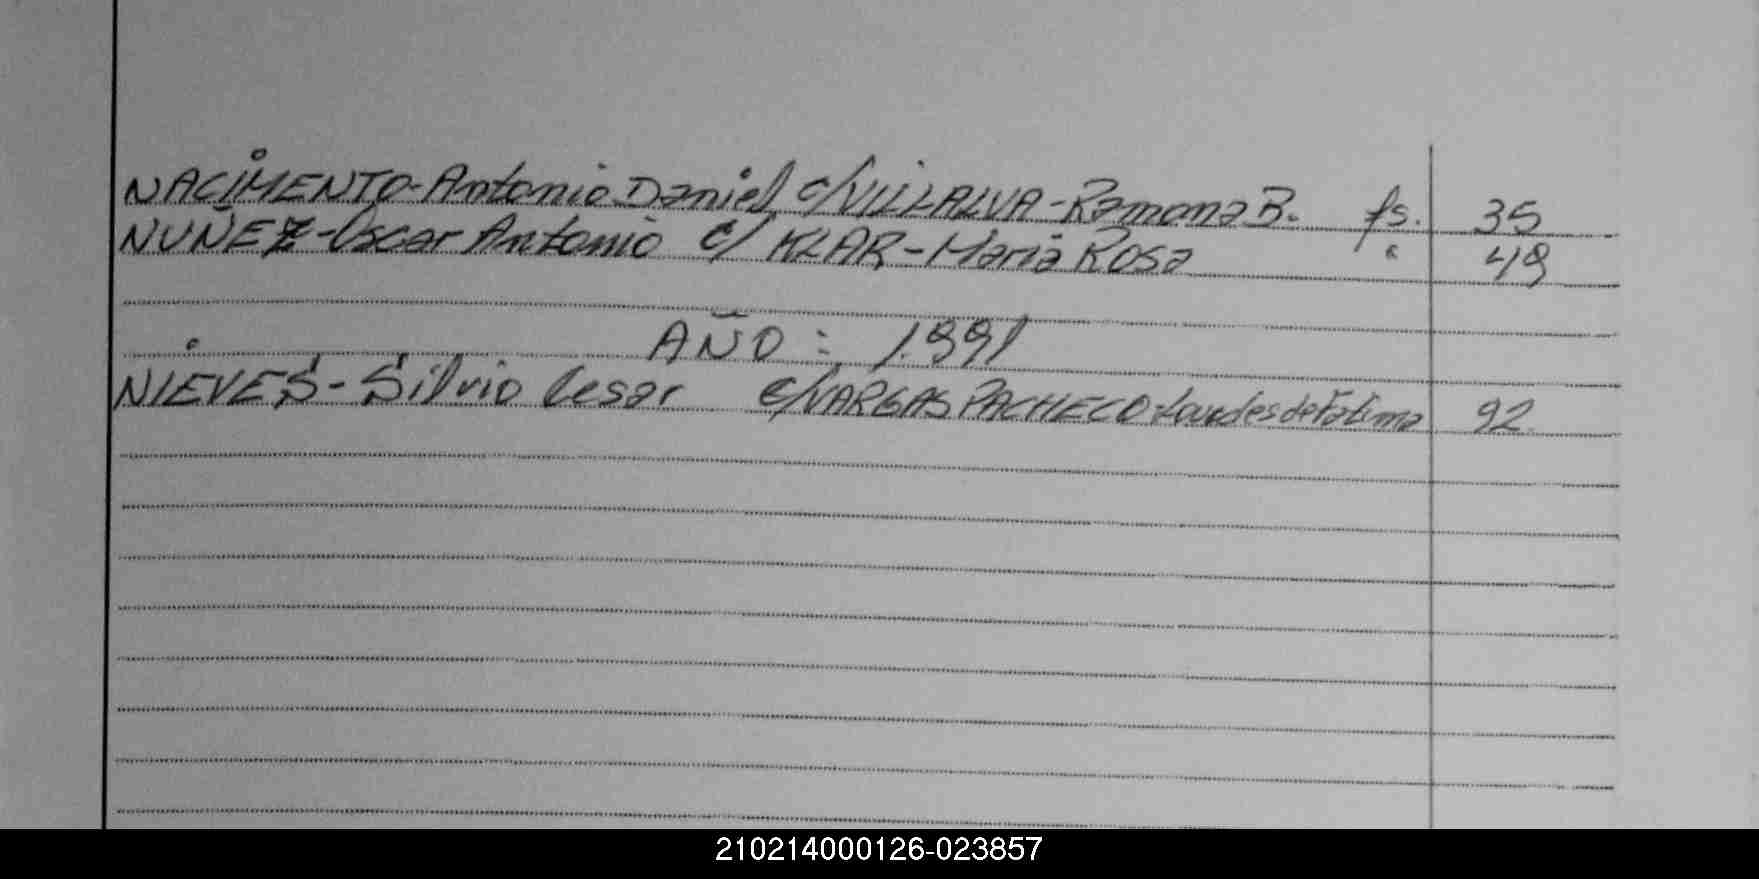 NACIMENTO-Antonio Daniel c/VILLALVA-Ramona B. fs. 35
NUÑEZ-Oscar Antonio c/ KLAR-Maria Rosa " 48
AÑO: 1.991
NIEVES-Silvio Cesar c/VARGAS PACHECO-Lourdes de Fatima 92
210214000126-023857